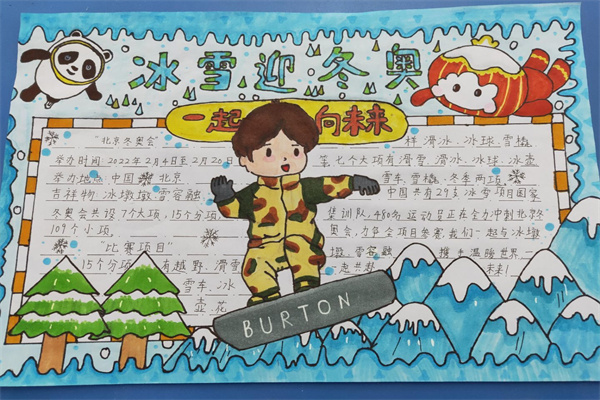 冰雪迎冬奥
一起向未来
"北京冬奥会"
举办时间2022年2月4日至2月20日
举办地点 中国 北京
吉祥物 冰墩墩,雪容融
冬奥会共设7个大项,15个分项
109个小项。
"比赛项目"
15个分项 有越野.滑雪
雪车.冰
壶.花
样滑冰.冰球.雪橇.
第七个大项有滑雪.滑冰.冰球.冰壶
雪车.雪橇.冬季两项。
中国共有29支冰雪项目国家
集训队,480名运动员正在全力冲刺北京冬
奥会,力争全项目参赛我们一起与冰墩
墩.雪容融 携手温暖世界一
起共赴 未来!
BURTON